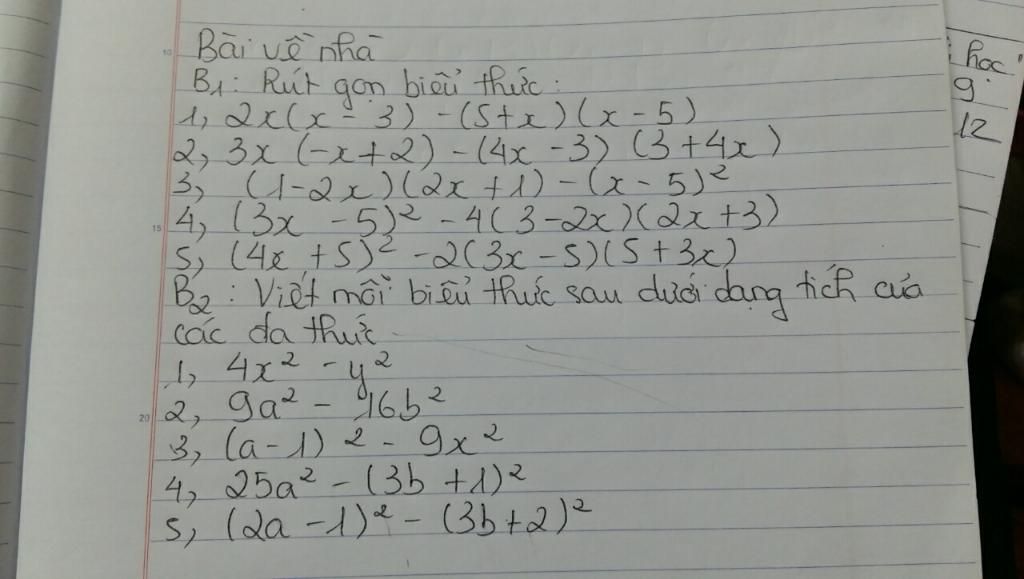 Bài về nhà
B1: Rút gọn biểu thức:
1, 2x(x - 3) - (5+x)(x - 5)
2, 3x (-x+2) - (4x - 3) (3+4x)
3, (1-2x)(2x+1) - (x - 5)²
4, (3x - 5)² - 4(3-2x)(2x+3)
5, (4x + 5)² - 2(3x - 5)(5+3x)
B2: Viết mỗi biểu thức sau dưới dạng tích của
các đa thức
1, 4x² - y²
2, 9a² - 16b²
3, (a-1)² - 9x²
4, 25a² - (3b +1)²
5, (2a - 1)² - (3b+2)²
học
9
12
10
15
20